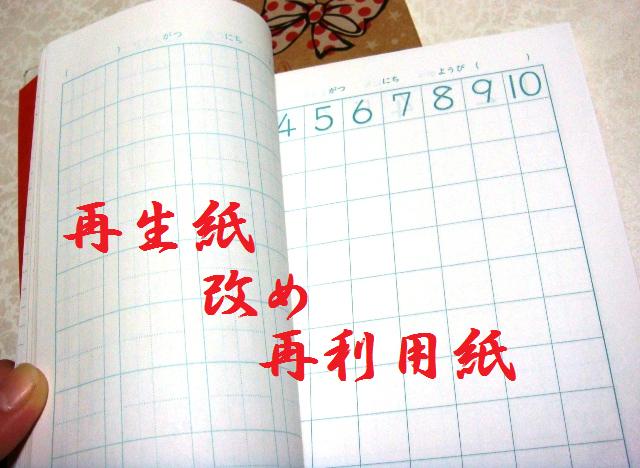 ( ) がつ にち
がつ にち ようび ( )
4 5 6 7 8 9 10
再生紙
改め
再利用紙